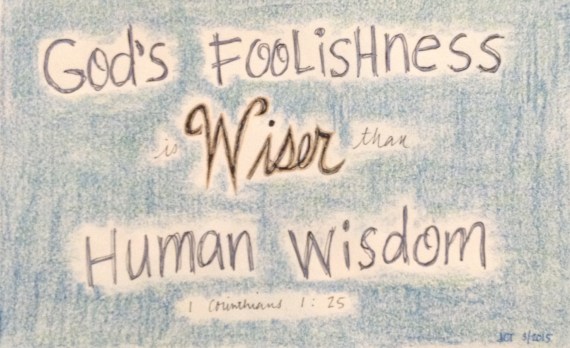 God's FOOLisHness
is Wiser than
Human Wisdom
1 Corinthians 1:25
3/2015